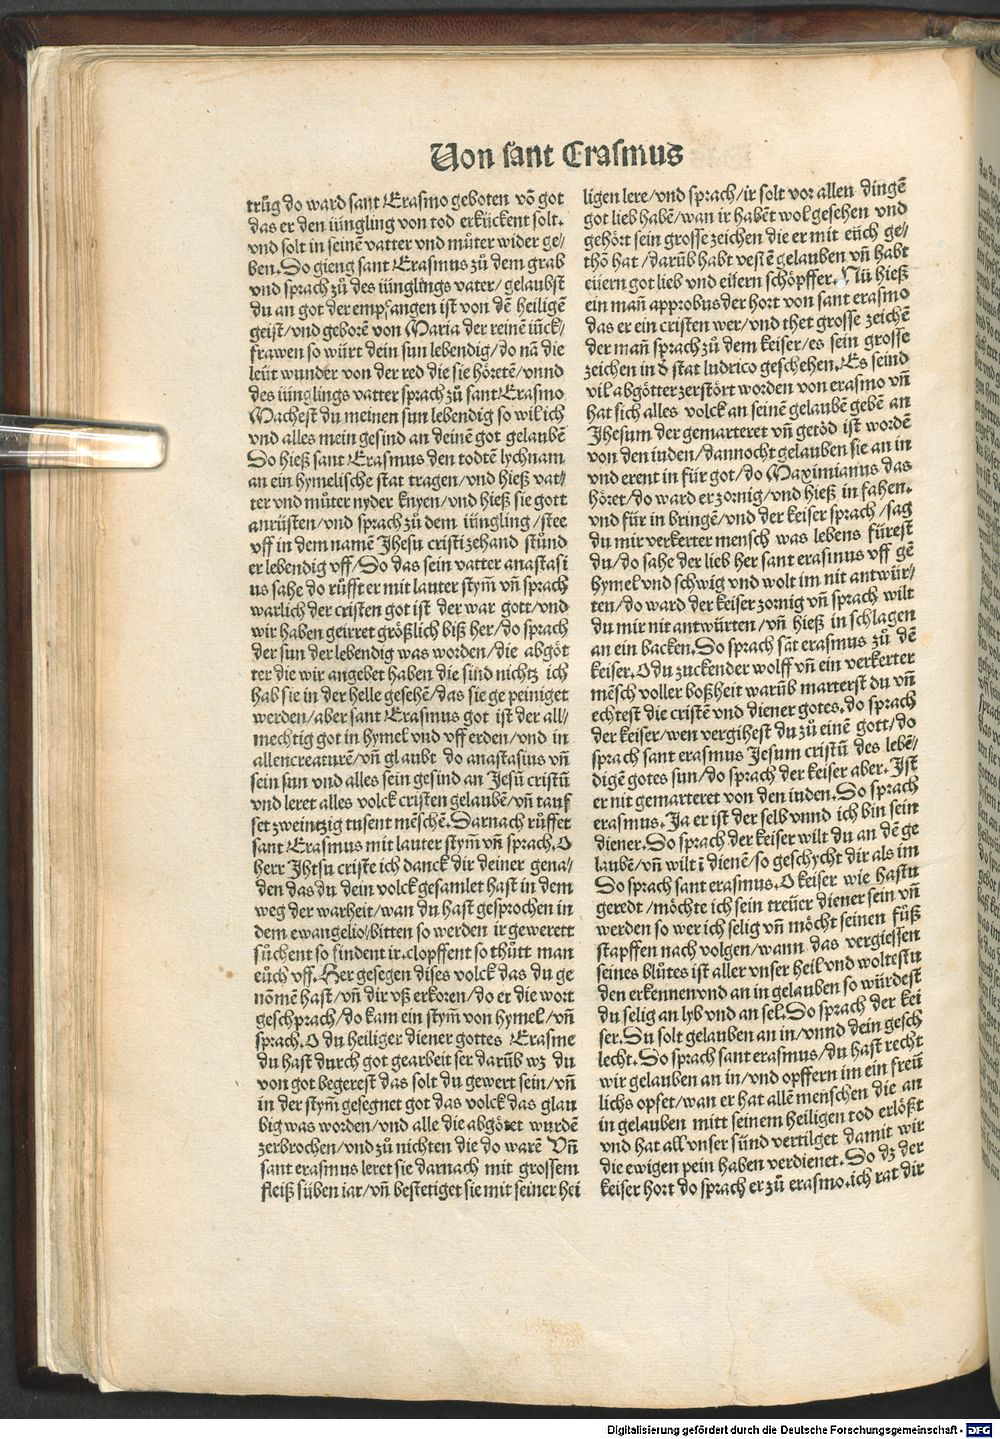 Von sant Erasmus
trůg do ward sant Erasmo geboten võ got
das er den iüngling von tod erkückent solt.
vnd solt in seinẽ vatter vnd můter wider ge/
ben. Do gieng sant Erasmus zů dem grab
vnd sprach zů des iünglings vater/ gelaubst
du an got der empfangen ist von dẽ heiligẽ
geist/vnd geborẽ von Maria der reinẽ iũck/
frawen so würt dein sun lebendig/do nã die
leüt wunder von der red die sie hőretẽ/vnnd
des iünglings vatter sprach zů sant Erasmo
Machest du meinen sun lebendig so wil ich
vnd alles mein gesind an deinẽ got gelaubẽ
Do hieß sant Erasmus den todtẽ lychnam
an ein hymelische stat tragen/vnd hieß vat/
ter vnd můter nyder knyen/vnd hieß sie gott
anrüsten/vnd sprach zů dem iüngling/stee
vff in dem namẽ Jhesu cristi zehand stůnd
er lebendig vff/Do das sein vatter anastasi
us sahe do růfft er mit lauter stym̃ vñ sprach
warlich der cristen got ist der war gott/vnd
wir haben geirret größlich biß her/do sprach
der sun der lebendig was worden/die abgőt
ter die wir angebet haben die sind nichtz ich
hab sie in der helle gesehẽ/das sie ge peiniget
werden/aber sant Erasmus got ist der all/
mechtig got in hymel vnd vff erden/vnd in
allen creaturẽ/vñ glaubt do anastasius vñ
sein sun vnd alles sein gesind an Jesũ cristũ
vnd leret alles volck cristen gelaubẽ/vñ tauf
fet zweintzig tusent mẽschẽ. Darnach růffet
sant Erasmus mit lauter stym̃ vñ sprach. O
herr Jhesu criste ich danck dir deiner gena/
den das du dein volck gesamlet hast in dem
weg der warheit/wan du hast gesprochen in
dem ewangelio/bitten so werden ir gewerett
sůchent so findent ir. clopffent so thůtt man
eüch vff. Her gesegen dises volck das du ge
nõmẽ hast/vñ dir vß erkoren/do er die wort
geschprach/do kam ein stym̃ von hymel/vñ
sprach. O du heiliger diener gottes Erasme
du hast durch got gearbeit ser darũb wz du
von got begerest das solt du gewert sein/vñ
in der stym̃ gesegnet got das volck das glau
big was worden/vnd alle die abgőtet wurdẽ
zerbrochen/vnd zů nichten die do warẽ Vñ
sant erasmus leret sie darnach mit grossem
fleiß süben iar/vñ bestetiget sie mit seiner hei
ligen lere/vnd sprach/ir solt vor allen dingẽ
got lieb habẽ/wan ir habẽt wol gesehen vnd
gehőrt sein grosse zeichen die er mit eüch ge/
thõ hat/darũb habt vestẽ gelauben vñ habt
eüern got lieb vnd eüern schöpffer. Nũ hieß
ein mañ approbus der hort von sant erasmo
das er ein cristen wer/vnd thet grosse zeichẽ
der mañ sprach zů dem keiser/es sein grosse
zeichen in đ stat ludrico geschehen. Es seind
vil abgőtter zerstőrt worden von erasmo vñ
hat sich alles volck an seinẽ gelaubẽ gebẽ an
Jhesum der gemarteret vñ getőd ist wordẽ
von den iuden/dannocht gelauben sie an in
vnd erent in für got/do Maximianus das
hőret/do ward er zornig/vnd hieß in fahen.
vnd für in bringẽ/vnd der keiser sprach/sag
du mir verkerter mensch was lebens fürest
du/do sahe der lieb her sant erasmus vff gẽ
hymel vnd schwig vnd wolt im nit antwür/
ten/do ward der keiser zornig vñ sprach wilt
du mir nit antwürten/vñ hieß in schlagen
an ein backen. Do sprach sãt erasmus zů dẽ
keiser. O du zuckender wolff vñ ein verkerter
mẽsch voller boßheit warũb marterst du vñ
echtest die cristẽ vnd diener gotes. do sprach
der keiser/wen vergihest du zů einẽ gott/do
sprach sant erasmus Jesum cristũ des lebẽ/
digẽ gotes sun/do sprach der keiser aber. Ist
er nit gemarteret von den iuden. Do sprach
erasmus. Ja er ist der selb vnnd ich bin sein
diener. Do sprach der keiser wilt du an dẽ ge
laubẽ/vñ wilt ĩ dienẽ/so geschycht dir als im
Do sprach sant erasmus. O keiser wie hastu
geredt/mőchte ich sein treüer diener sein vñ
werden so wer ich selig vñ mőcht seinen fůß
stapffen nach volgen/wann das vergiessen
seines blůtes ist aller vnser heil vnd woltestu
den erkennen vnd an in gelauben so würdest
du selig an lyb vnd an sel. Do sprach der kei
ser. Du solt gelauben an in/vnnd dein gesch
lecht. Do sprach sant erasmus/du hast recht
wir gelauben an in/vnd opffern im ein freü
lichs opfet/wan er hat allẽ menschen die an
in gelauben mitt seinem heiligen tod erlőßt
vnd hat all vnser sünd vertilget damit wir
die ewigen pein haben verdienet. Do dz der
keiser hort do sprach er zů erasmo. ich rat dir
Digitalisierung gefördert durch die Deutsche Forschungsgemeinschaft - DFG